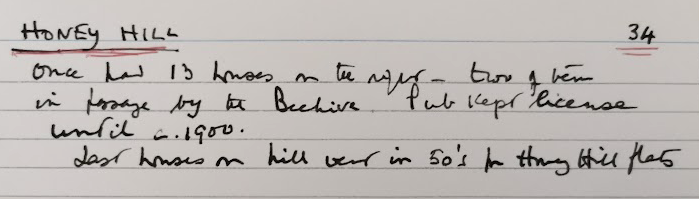 HONEY HILL 34
Once had 13 houses on the right - two of them
in passage by the Beehive. Pub kept license
until c.1900.
Last houses on hill went in 50's for Honey Hill flats